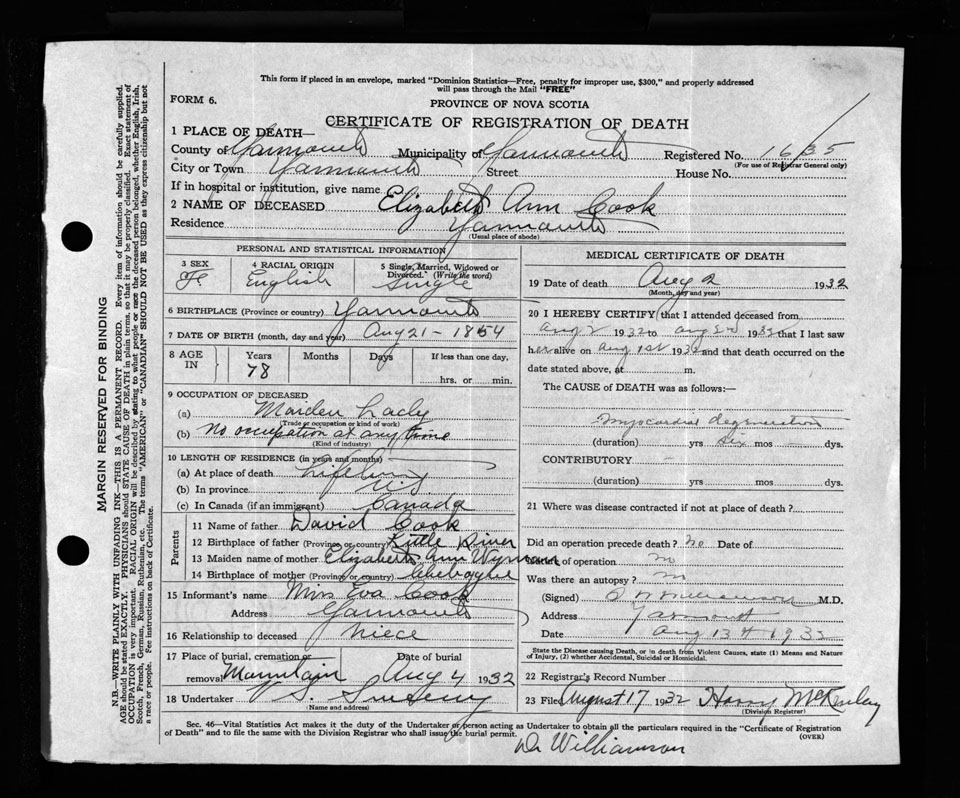 This form if placed in an envelope, marked "Dominion Statistics—Free, penalty for improper use, $300," and properly addressed
will pass through the Mail "FREE"
FORM 6.
PROVINCE OF NOVA SCOTIA
CERTIFICATE OF REGISTRATION OF DEATH
1 PLACE OF DEATH—
County of Yarmouth Municipality of Yarmouth Registered No. 1635
(For use of Registrar General only)
City or Town Yarmouth Street House No.
If in hospital or institution, give name
2 NAME OF DECEASED Elizabeth Ann Cook
Residence Yarmouth
(Usual place of abode)
PERSONAL AND STATISTICAL INFORMATION
3 SEX 4 RACIAL ORIGIN 5 Single, Married, Widowed or
Divorced. (Write the word)
F. English Single
6 BIRTHPLACE (Province or country) Yarmouth
7 DATE OF BIRTH (month, day and year) Aug 21 - 1854
8 AGE IN Years Months Days If less than one day,
78 hrs. or min.
9 OCCUPATION OF DECEASED
(a) Maiden Lady
(Trade or occupation or kind of work)
(b) No occupation at any time
(Kind of industry)
10 LENGTH OF RESIDENCE (in years and months)
(a) At place of death Life
(b) In province
(c) In Canada (if an immigrant) Canada
Parents
11 Name of father David Cook
12 Birthplace of father (Province or country) Little River
13 Maiden name of mother Elizabeth Ann Wyman
14 Birthplace of mother (Province or country) Chebogue
15 Informant's name Miss Eva Cook
Address Yarmouth
16 Relationship to deceased Niece
17 Place of burial, cremation or removal Mountain
Date of burial Aug 4 1932
18 Undertaker V. S.
Name and address)
MEDICAL CERTIFICATE OF DEATH
19 Date of death Aug 2 1932
(Month, day and year)
20 I HEREBY CERTIFY that I attended deceased from
Aug 2 1932 to Aug 2nd 1932 that I last saw
her alive on Aug 1st 1932 and that death occurred on the
date stated above, at m.
The CAUSE of DEATH was as follows:
Myocardial degeneration
(duration) yrs six mos — dys.
CONTRIBUTORY —
(duration) yrs. — mos. dys.
21 Where was disease contracted if not at place of death?
Did an operation precede death? No Date of
Nature of operation no
Was there an autopsy? no
(Signed) Williamson M.D.
Address Yarmouth
Date Aug 13th 1932
State the Disease causing Death, or in death from Violent Causes, state (1) Means and Nature
of Injury, (2) whether Accidental, Suicidal or Homicidal.
22 Registrar's Record Number
23 Filed August 17 1932 Harry McKenley
(Division Registrar)
Sec. 46—Vital Statistics Act makes it the duty of the Undertaker or person acting as Undertaker to obtain all the particulars required in the "Certificate of Registration
of Death" and to file the same with the Division Registrar who shall issue the burial permit.
(OVER)
Dr Williamson
MARGIN RESERVED FOR BINDING
N.B.—WRITE PLAINLY WITH UNFADING INK—THIS IS A PERMANENT RECORD. Every item of information should be carefully supplied.
AGE should be stated EXACTLY. PHYSICIANS should STATE CAUSE OF DEATH in plain terms, so that it may be properly classified. Exact statement of
OCCUPATION is very important. RACIAL ORIGIN will be described by stating to what people or race the deceased person belonged, whether English, Irish,
Scotch, French, German, Russian, Ruthenian, etc. The terms "AMERICAN" or "CANADIAN" SHOULD NOT BE USED as they express citizenship but not
a race or people. See instructions on back of Certificate.